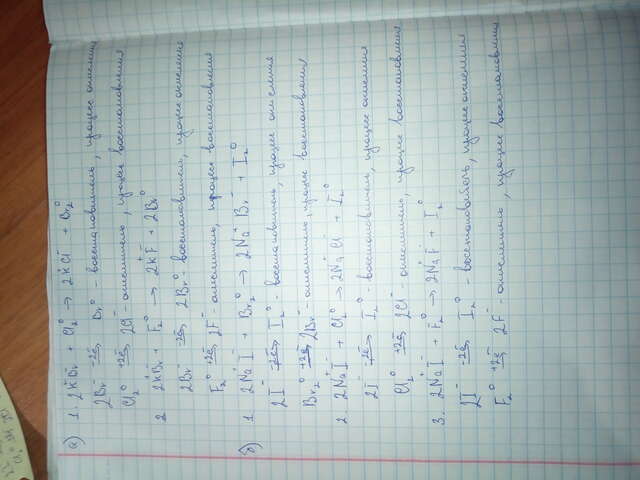 а) 1. 2K⁺Br⁻ + Cl₂⁰ → 2K⁺Cl⁻ + Br₂⁰
2Br⁻ -2ē→ Br₂⁰ - восстановитель, процесс окисления
Cl₂⁰ +2ē→ 2Cl⁻ - окислитель, процесс восстановления
2 2K⁺Br⁻ + F₂⁰ → 2K⁺F⁻ + 2Br⁰
2Br⁻ -2ē→ 2Br⁰ - восстановитель, процесс окисления
F₂⁰ +2ē→ 2F⁻ - окислитель, процесс восстановления
б) 1 2Na⁺I⁻ + Br₂⁰ → 2Na⁺Br⁻ + I₂⁰
2I⁻ -2ē→ I₂⁰ - восстановитель, процесс окисления
Br₂⁰ +2ē→ 2Br⁻ - окислитель, процесс восстановления
2 2Na⁺I⁻ + Cl₂⁰ → 2Na⁺Cl⁻ + I₂⁰
2I⁻ -2ē→ I₂⁰ - восстановитель, процесс окисления
Cl₂⁰ +2ē→ 2Cl⁻ - окислитель, процесс восстановления
3. 2Na⁺I⁻ + F₂⁰ → 2Na⁺F⁻ + I₂⁰
2I⁻ -2ē→ I₂⁰ - восстановитель, процесс окисления
F₂⁰ +2ē→ 2F⁻ - окислитель, процесс восстановления